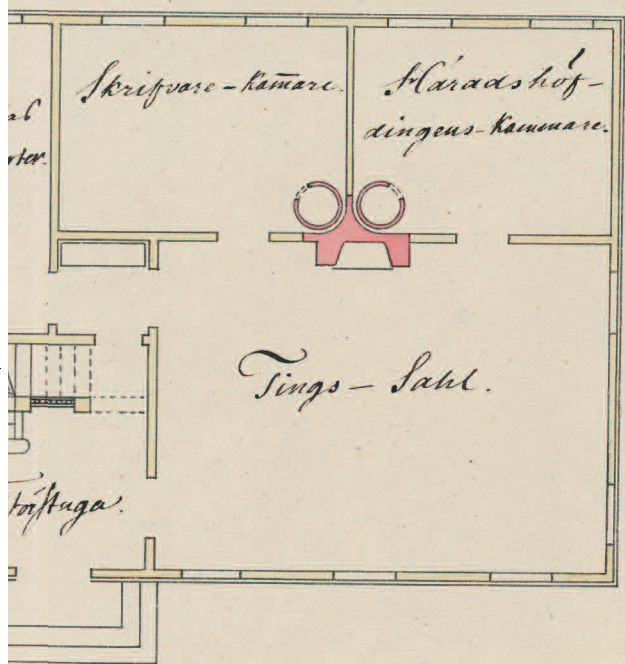 Skrifvare-Kam̄are.
Häradshöf-
dingens-Kammare.
Tings-Sahl.